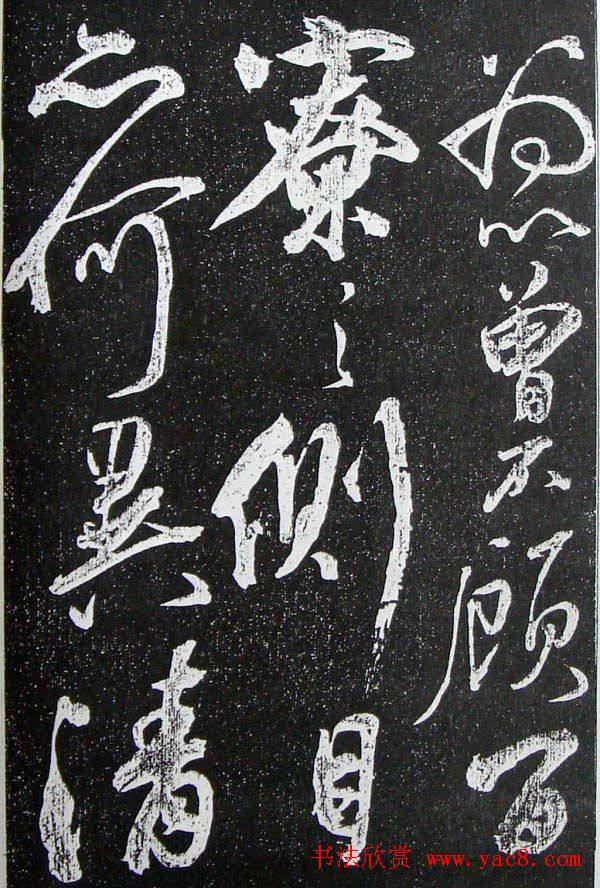 为心曾不顾百
寮之侧目
亦何異清
书法欣赏 www.yac8.com